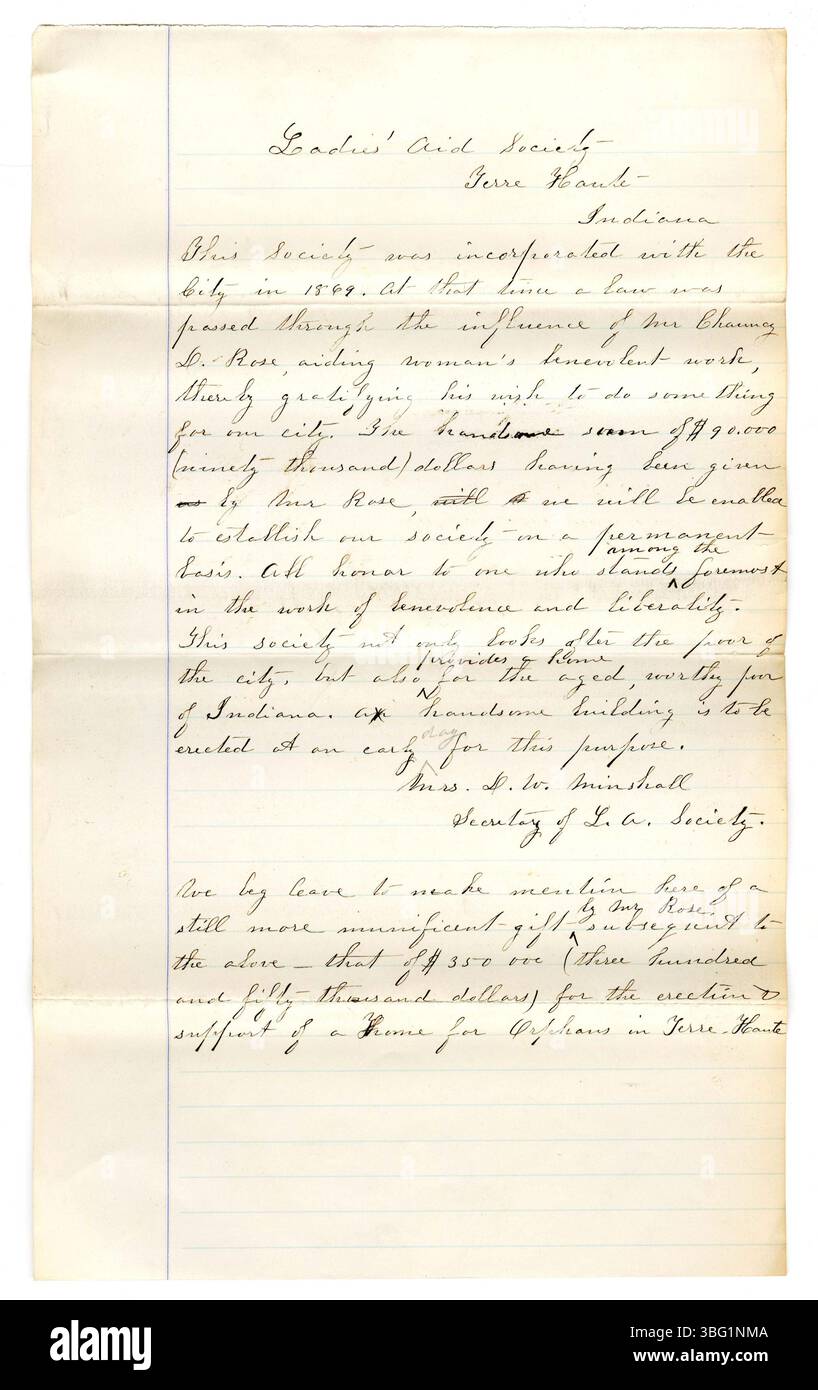 Ladies' Aid Society
Terre Haute
Indiana
This Society was incorporated with the
City in 1869. At that time a law was
passed through the influence of Mr Chauncy
D. Rose, aiding woman's benevolent work,
thereby gratifying his wish to do something
for our city. The handsome sum of $90.000
(ninety thousand) dollars having been given
as by Mr Rose, will we will be enabled
to establish our society on a permanent
basis. All honor to one who stands among the foremost
in the work of benevolence and liberality.
This society not only looks after the poor of
the city, but also provides a home for the aged, worthy poor
of Indiana. A handsome building is to be
erected at an early day for this purpose.
Mrs. D. W. Minshall
Secretary of L. A. Society.
We beg leave to make mention here of a
still more munificent gift by Mr Rose, subsequent to
the above — that of $350 000 (three hundred
and fifty thousand dollars) for the erection &
support of a Home for Orphans in Terre-Haute
alamy
Image ID: 3BG1NMA
www.alamy.com